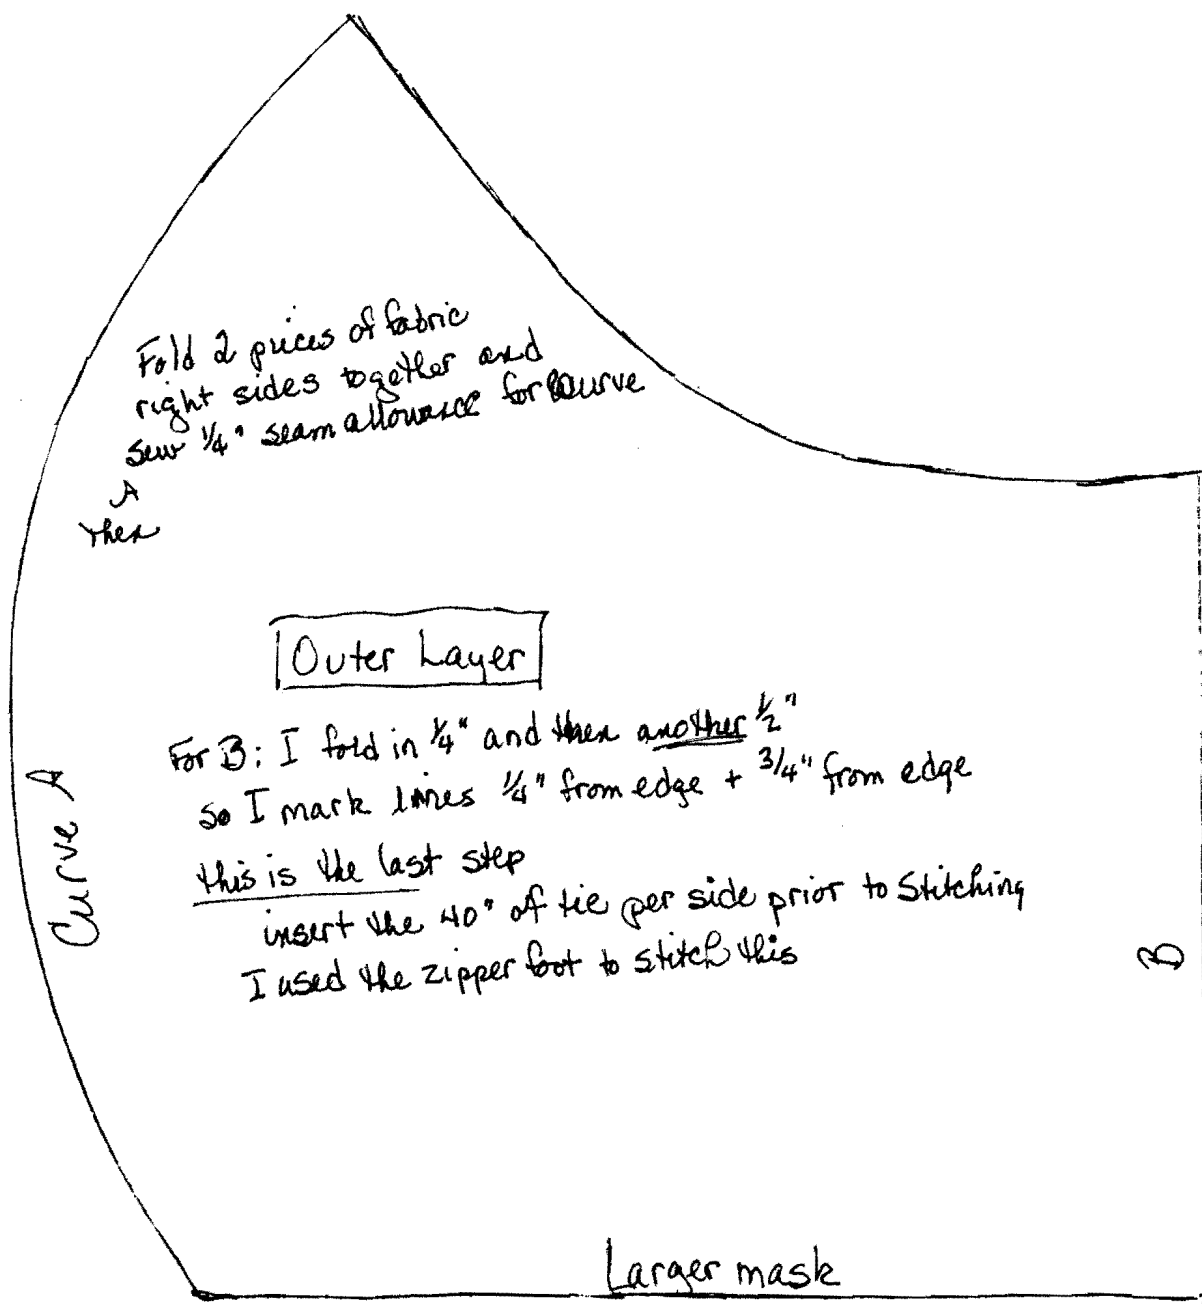 Fold 2 pieces of fabric
right sides together and
sew 1/4" seam allowance for curve
A
then
Outer Layer
For B: I fold in 1/4" and then another 1/2"
so I mark lines 1/4" from edge + 3/4" from edge
this is the last step
insert the 40" of tie per side prior to stitching
I used the zipper foot to stitch this
Curve A
B
Larger mask